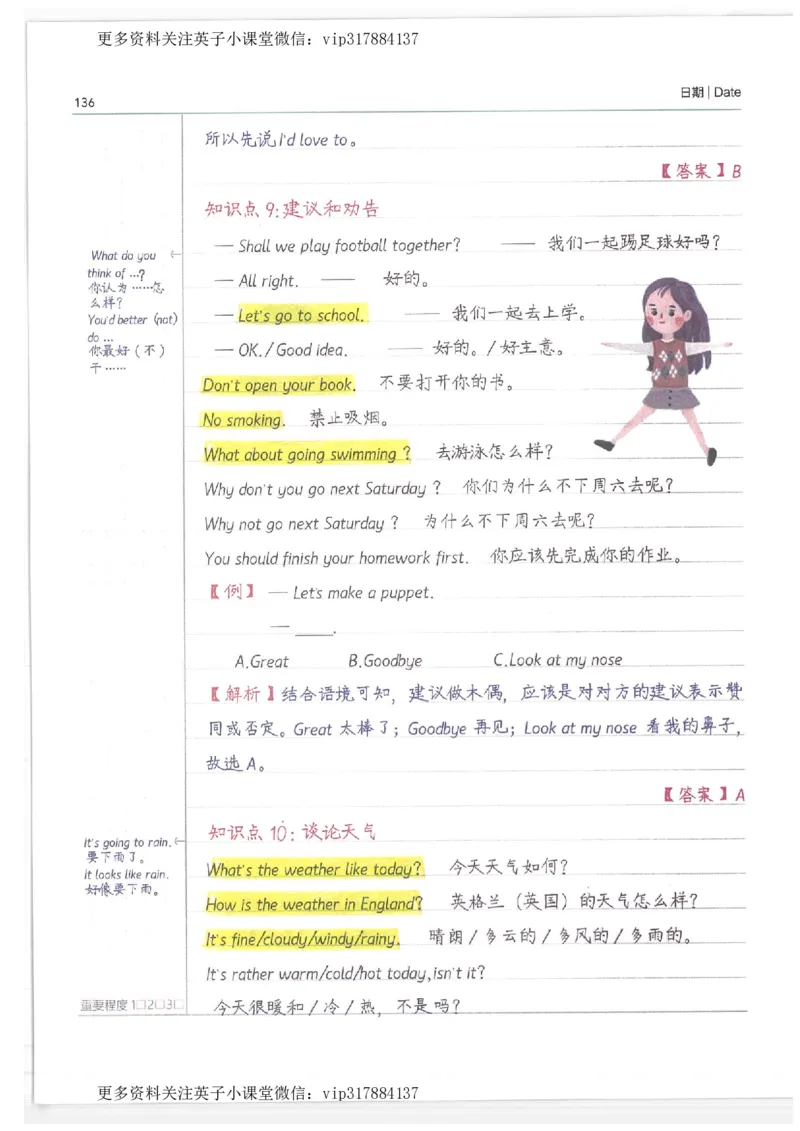 更多资料关注英子小课堂微信：vip317884137
136
日期 | Date
所以先说 I'd love to。
【答案】B
知识点 9:建议和劝告
— Shall we play football together? —— 我们一起踢足球好吗？
— All right. —— 好的。
— Let's go to school. —— 我们一起去上学。
— OK./Good idea. —— 好的。/好主意。
Don't open your book. 不要打开你的书。
No smoking. 禁止吸烟。
What about going swimming ? 去游泳怎么样？
Why don't you go next Saturday ? 你们为什么不下周六去呢？
Why not go next Saturday ? 为什么不下周六去呢？
You should finish your homework first. 你应该先完成你的作业。
【例】 — Let's make a puppet.
— ____.
A.Great B.Goodbye C.Look at my nose
【解析】结合语境可知，建议做木偶，应该是对对方的建议表示赞
同或否定。Great 太棒了；Goodbye 再见；Look at my nose 看我的鼻子，
故选 A。
【答案】A
知识点 10：谈论天气
What's the weather like today? 今天天气如何？
How is the weather in England? 英格兰（英国）的天气怎么样？
It's fine/cloudy/windy/rainy. 晴朗/多云的/多风的/多雨的。
It's rather warm/cold/hot today,isn't it?
今天很暖和/冷/热，不是吗？
What do you
think of …?
你认为……怎
么样？
You'd better (not)
do …
你最好（不）
干……
It's going to rain.
要下雨了。
It looks like rain.
好像要下雨。
重要程度 1□2□3□
更多资料关注英子小课堂微信：vip317884137